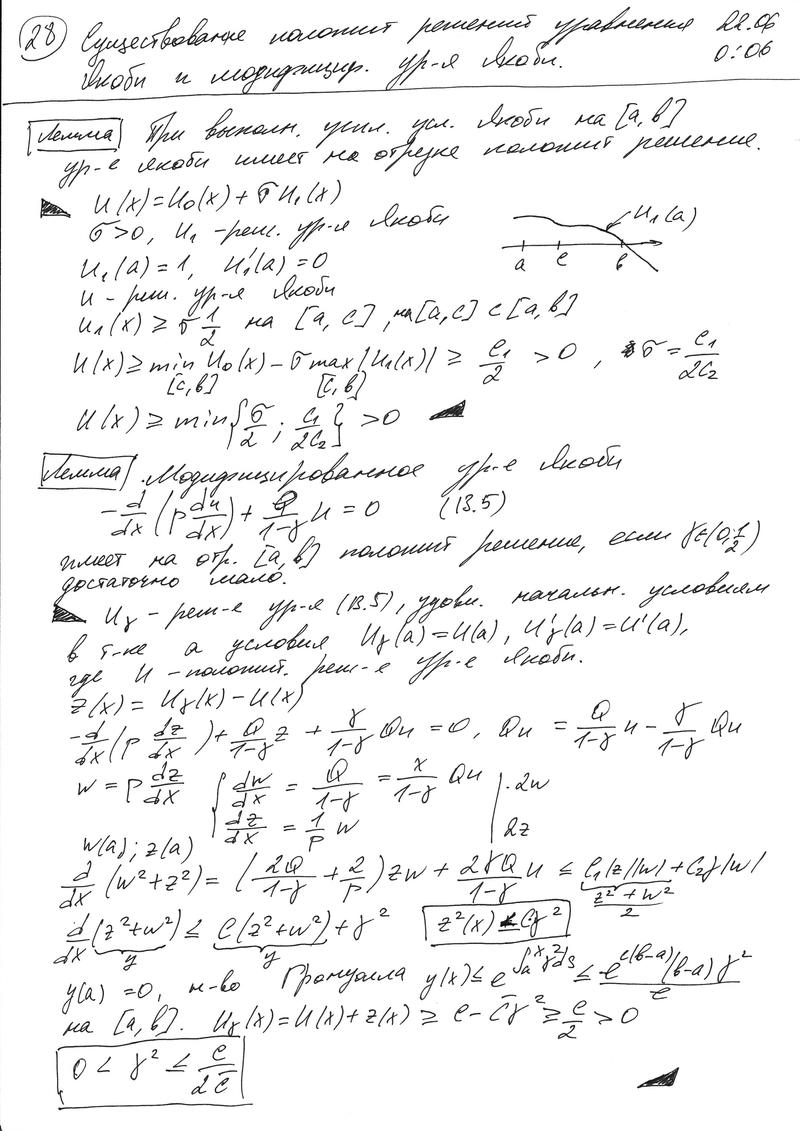 28 Существование положит решений уравнения 22.06
Якоби и модифицир. ур-я Якоби. 0:06
Лемма При выполн. усил. усл. Якоби на [a, b]
ур-е Якоби имеет на отрезке положит решение.
u(x) = u₀(x) + σ u₁(x)
σ>0, u₁ - реш. ур-я Якоби
u₁(a)
u₁(a) = 1, u₁'(a) = 0
a c b
u - реш. ур-я Якоби
u₁(x) ≥ σ 1/2 на [a, c], на [a, c] ⊂ [a, b]
u(x) ≥ min u₀(x) - σ max |u₁(x)| ≥ c₁/2 > 0, σ = c₁/2c₂
[c, b] [c, b]
u(x) ≥ min{σ/2 ; c₁/2c₂} > 0
Лемма. Модифицированное ур-е Якоби
-d/dx (p du/dx) + Q/(1-γ) u = 0 (13.5)
имеет на отр. [a, b] положит решение, если γ∈(0, 1/2)
достаточно мало.
u_γ - реш-е ур-я (13.5), удовл. начальн. условиям
в т-ке a условия u_γ(a) = u(a), u'_γ(a) = u'(a),
где u - положит. реш-е ур-е Якоби.
z(x) = u_γ(x) - u(x)
-d/dx (p dz/dx) + Q/(1-γ) z + γ/(1-γ) Qu = 0, Qu = Q/(1-γ) u - γ/(1-γ) Qu
w = p dz/dx { dw/dx = Q/(1-γ) = γ/(1-γ) Qu | · 2w
dz/dx = 1/p w | 2z
w(a); z(a)
d/dx (w² + z²) = (2Q/(1-γ) + 2/p) zw + 2γQ/(1-γ) u ≤ c₁|z||w| + c₂γ|w|
(z² + w²)/2
d/dx (z² + w²) ≤ C(z² + w²) + γ² z²(x) ≤ Cγ²
y y
y(a) = 0, н-во Гронуолла y(x) ≤ e ∫ₐˣ γ² ds ≤ e^{c(b-a)} (b-a) γ² / c
на [a, b]. u_γ(x) = u(x) + z(x) ≥ c - c̄γ² ≥ c/2 > 0
0 < γ² ≤ c/2c̄